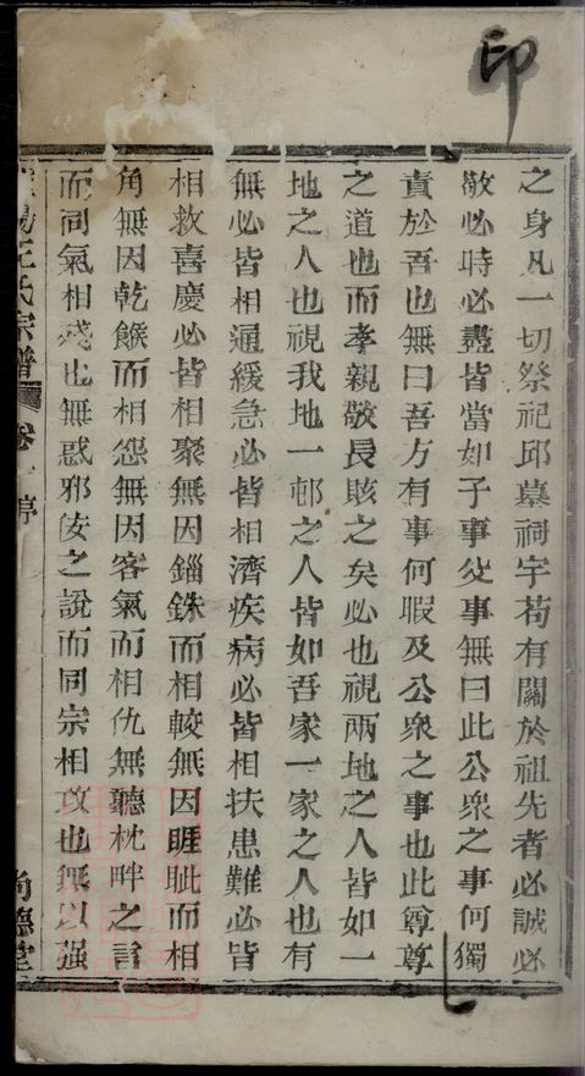 印
之身凡一切祭祀邱墓祠宇苟有關於祖先者必誠必
敬必時必盡皆當如子事父事無曰此公衆之事何獨
責於吾也無曰吾方有事何暇及公衆之事也此尊尊
之道也而孝親敬長賅之矣必也視兩地之人皆如一
地之人也視我地一邨之人皆如吾家一家之人也有
無必皆相通緩急必皆相濟疾病必皆相扶患難必皆
相救喜慶必皆相聚無因錙銖而相較無因睚眦而相
角無因乾餱而相怨無因客氣而相仇無聽枕畔之言
而同氣相殘也無惑邪侫之說而同宗相攻也無以强
陽王氏宗譜 卷 尚德堂